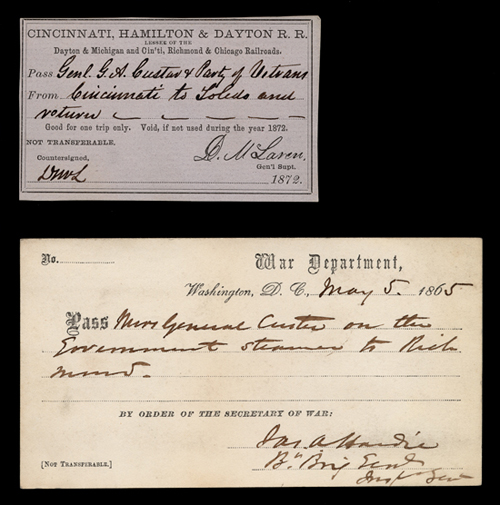 CINCINNATI, HAMILTON & DAYTON R. R.
LESSEE OF THE
Dayton & Michigan and Cin'ti, Richmond & Chicago Railroads.
Pass Genl. G. A. Custar & Party of Vetrans
From Cincinnati to Toledo and
return
Good for one trip only. Void, if not used during the year 1872.
NOT TRANSFERABLE.
Countersigned,
D. McLaren.
Gen'l Supt.
1872.
No.
War Department,
Washington, D. C., May 5. 1865
Pass Mrs General Custer on the
Government steamer to Rich
mond.
BY ORDER OF THE SECRETARY OF WAR:
Jas. A Hardie
Bt Brig Genl
[NOT TRANSFERABLE.]